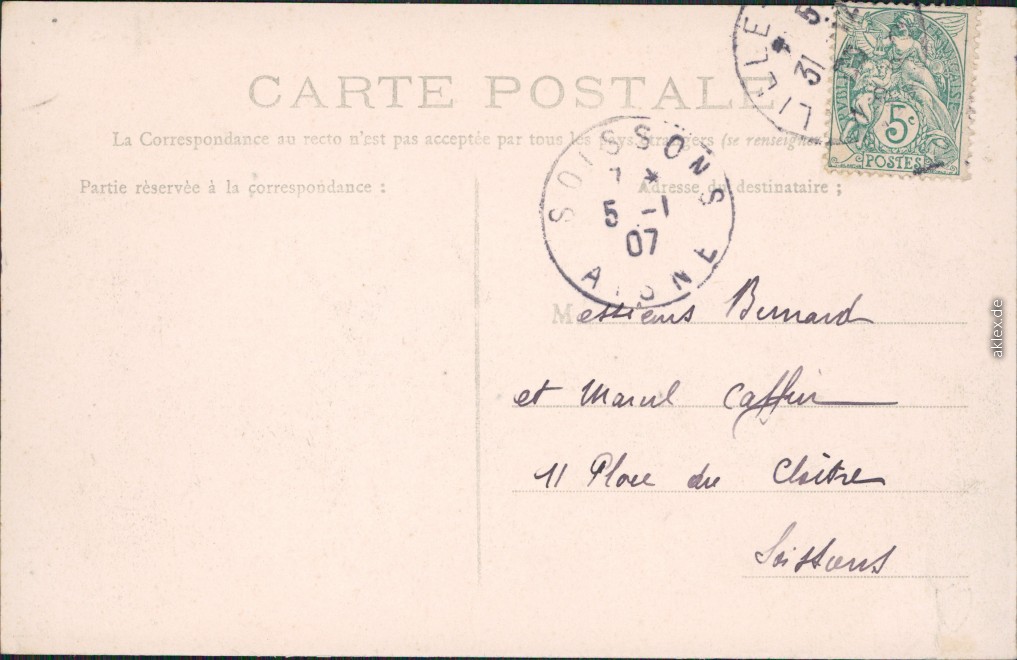 CARTE POSTALE
La Correspondance au recto n'est pas acceptée par tous les pays étrangers (se renseigner
Partie réservée à la correspondance :
Adresse du destinataire ;
LILLE
5
31
5c
POSTES
SOISSONS
7 *
5 -1
07
AISNE
Messieurs Bernard
et Marcel Caffin
11 Place du Cloître
Soissons
aklex.de